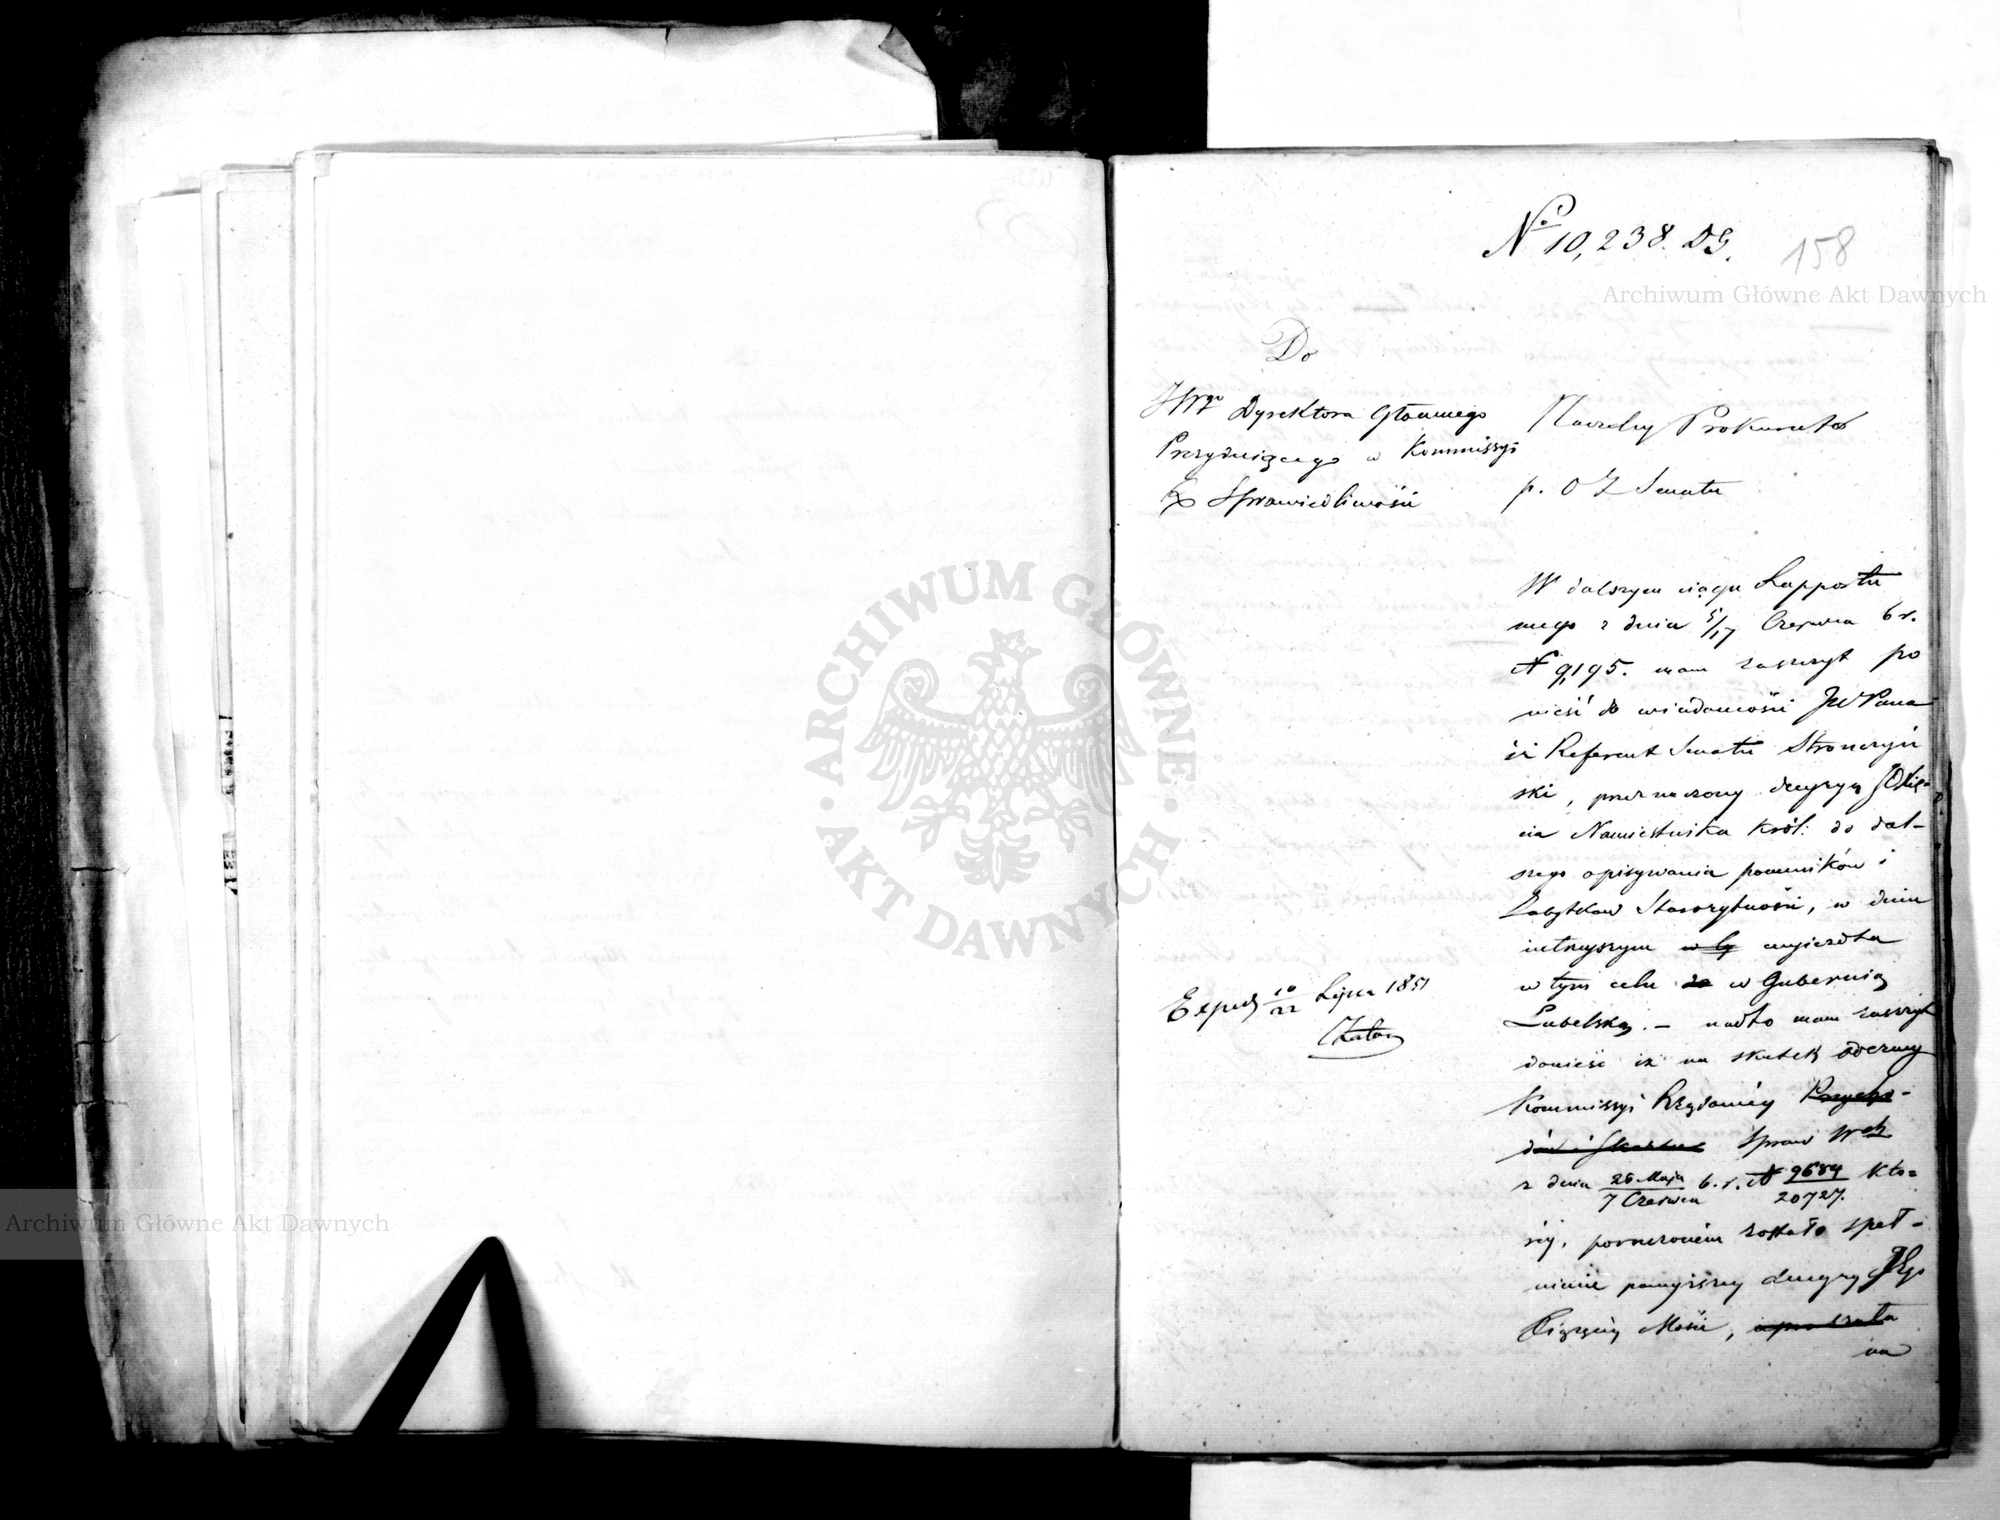 No 10,238. DG.
158
Archiwum Główne Akt Dawnych
Do
JWgo Dyrektora Głównego
Prezydującego w Kommissyi
Sprawiedliwości
Naczelny Prokurator
p. O Z Senatu
W dalszym ciągu Rapportu
mego z dnia 5/17 Czerwca b r.
N 9195. mam zaszczyt po
nieść do wiadomości JW Pana
iż Referent Senatu Stronczyń
ski, przeznaczony decyzyą JO Xię-
cia Namiestnika Król: do dal-
szego opisywania pomników i
Zabytków Starożytności, w dniu
jutrzejszym w tym wyjeżdża
w tym celu do w Gubernią
Lubelską. – nadto mam zaszczyt
donieść iż na skutek odezwy
Kommissyi Rządowéy Przycho-
dów i Skarbu Spraw Wch
z dnia 26 Maja / 7 Czerwca b. r. N 9684 / 20727. któ-
réy, poruczoném zostało speł-
nienie powyższey decyzyi JEgo
Xiążęcéy Mości,
na
Exped 10/22 Lipca 1851
ARCHIWUM GŁÓWNE AKT DAWNYCH
Archiwum Główne Akt Dawnych